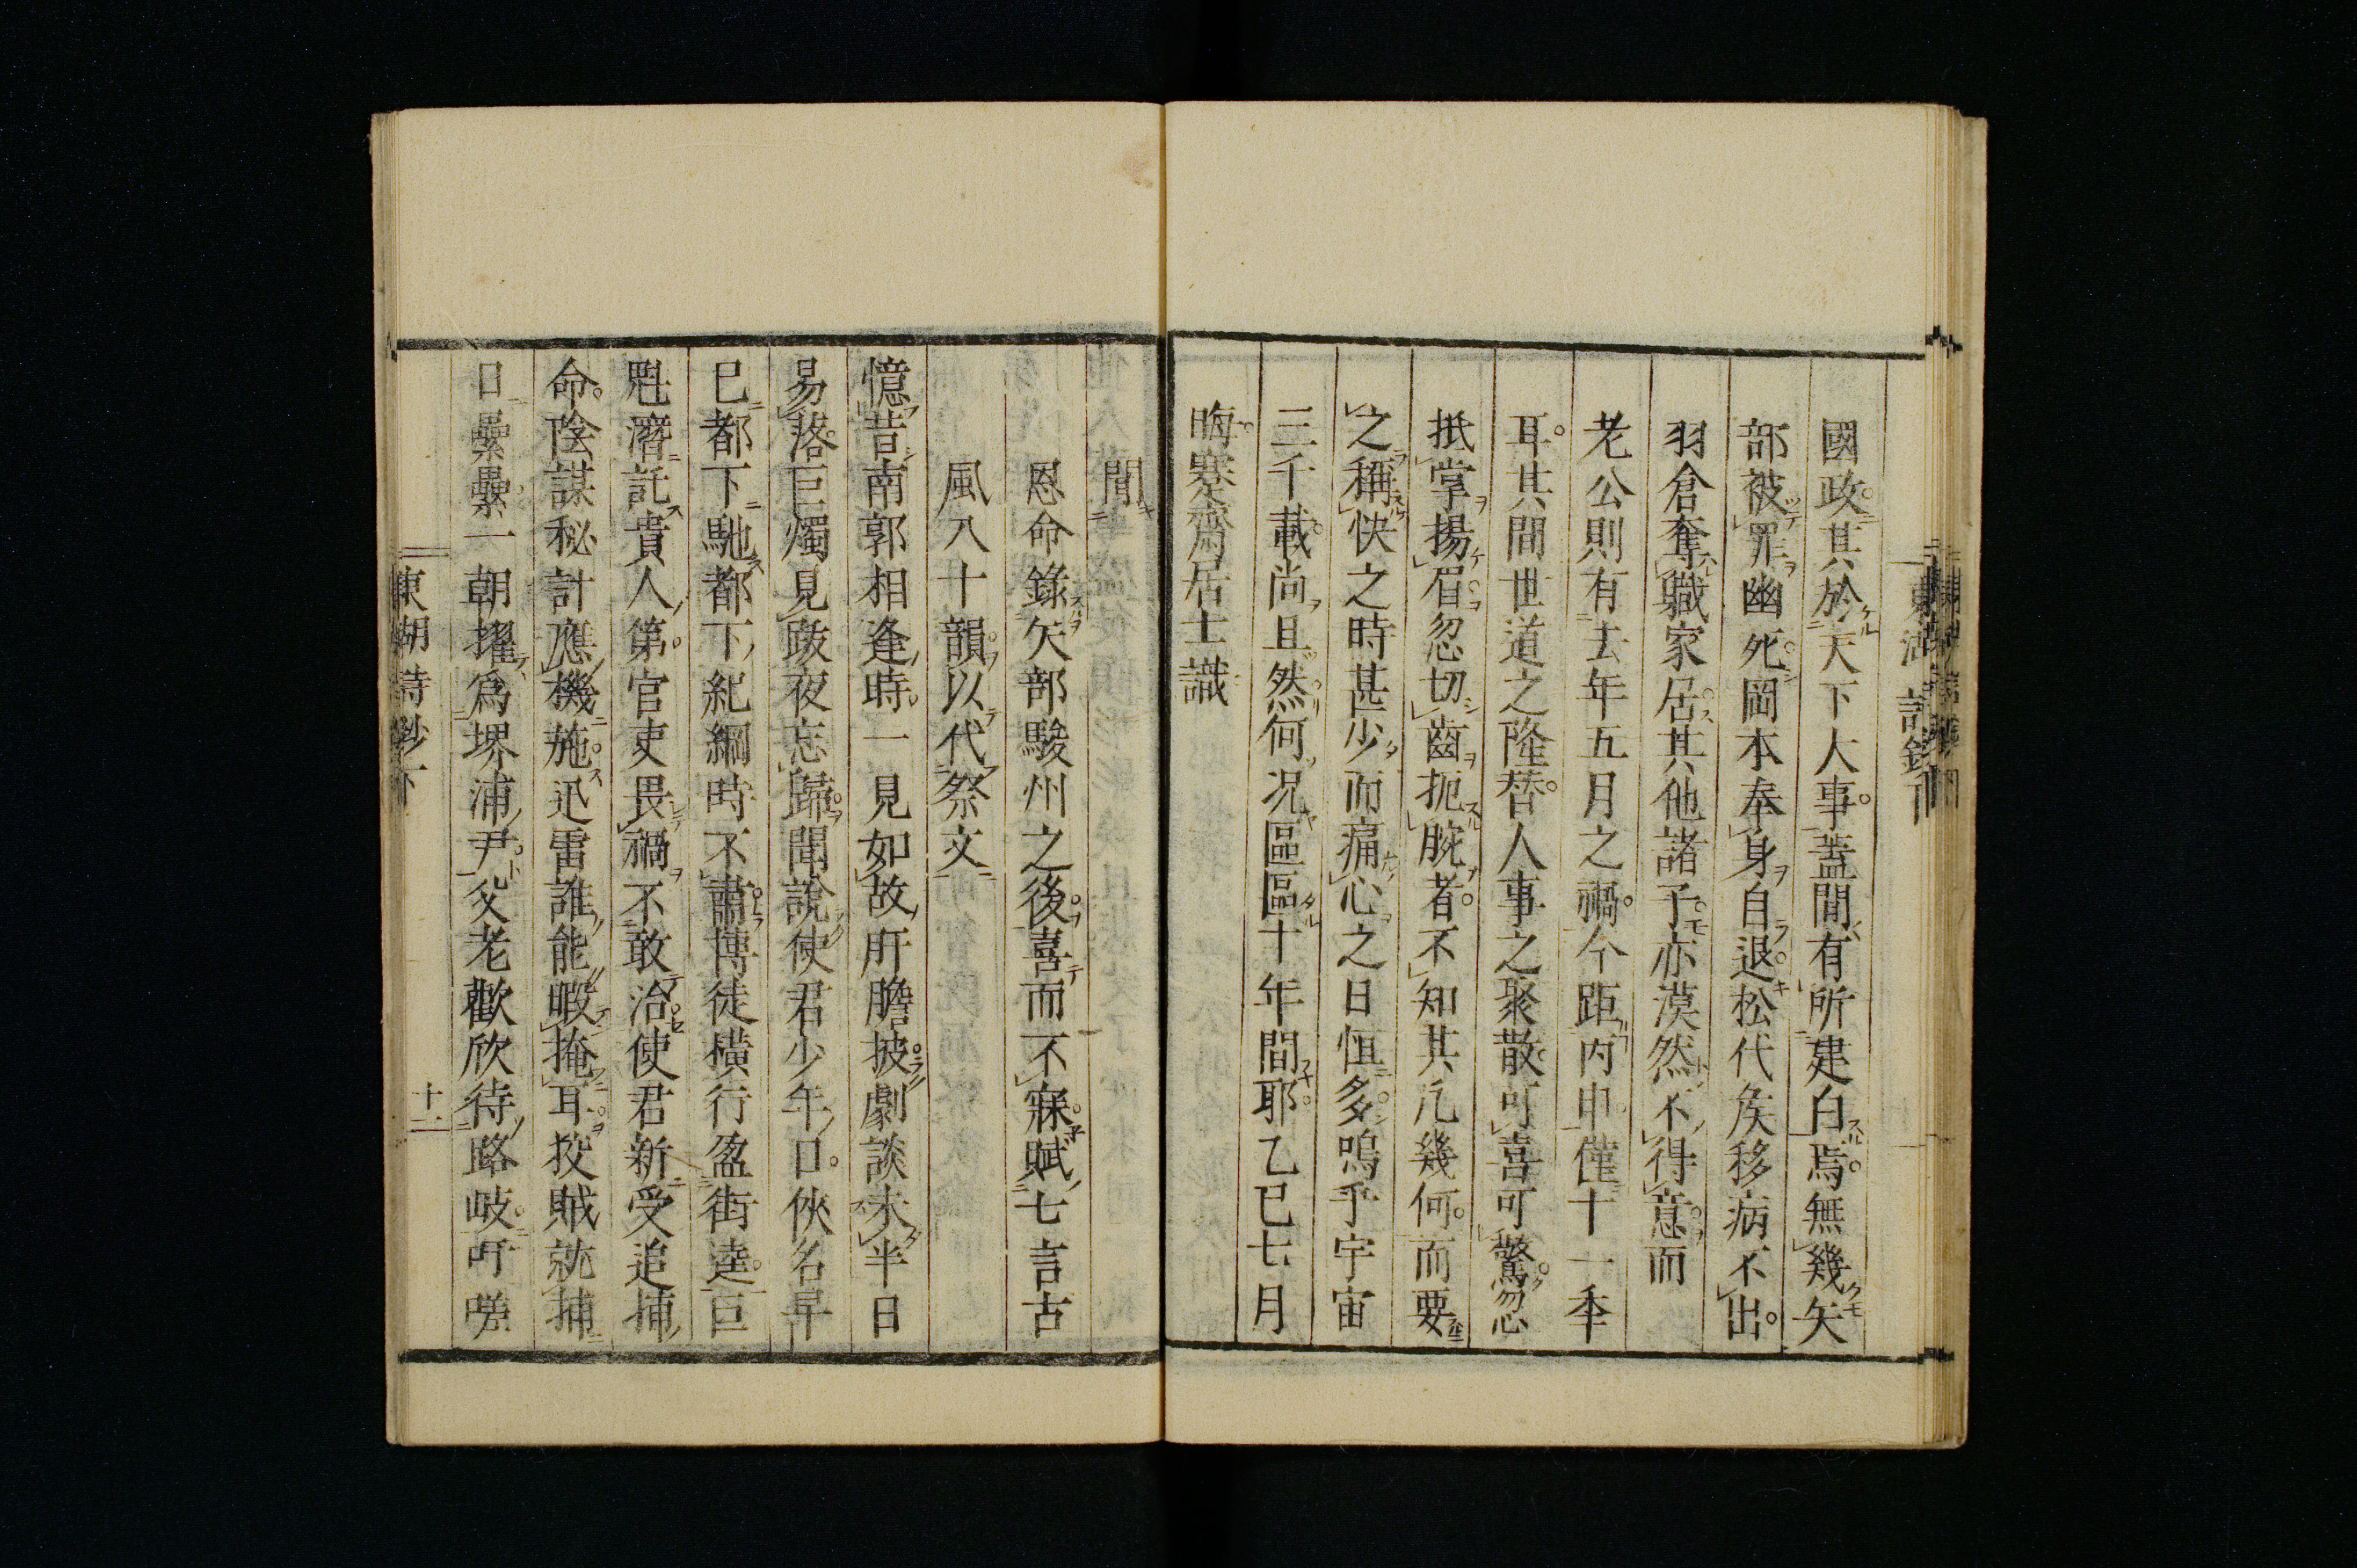 國政其於天下人事蓋間有所建白焉無幾矢
部被罪幽死岡本奉身自退松代矦移病不出
羽倉奪職家居其他諸子亦漠然不得意而
老公則有去年五月之禍今距丙申僅十一季
耳其間世道之隆替人事之聚散可喜可驚忽
抵掌揚眉忽切齒扼腕者不知其凢幾何而要
之稱快之時甚少而痛心之日恒多嗚乎宇宙
三千載尚且然何況區區十年間耶乙巳七月
晦蹇齋居士識
聞
恩命錄矢部駿州之後喜而不寐賦七言古
風八十韻以代祭文
憶昔南郭相逢時一見如故肝膽披劇談未半日
易落巨燭見跋夜忘歸聞說使君少年日俠名早
已都下馳都下紀綱時不肅博徒橫行盈街逵巨
魁濳託貴人第官吏畏禍不敢治使君新受追捕
命陰謀秘計應機施迅雷誰能暇掩耳狡賊就捕
日纍纍一朝擢爲堺浦尹父老歡欣待路岐吁嗟
東湖詩鈔下
十二